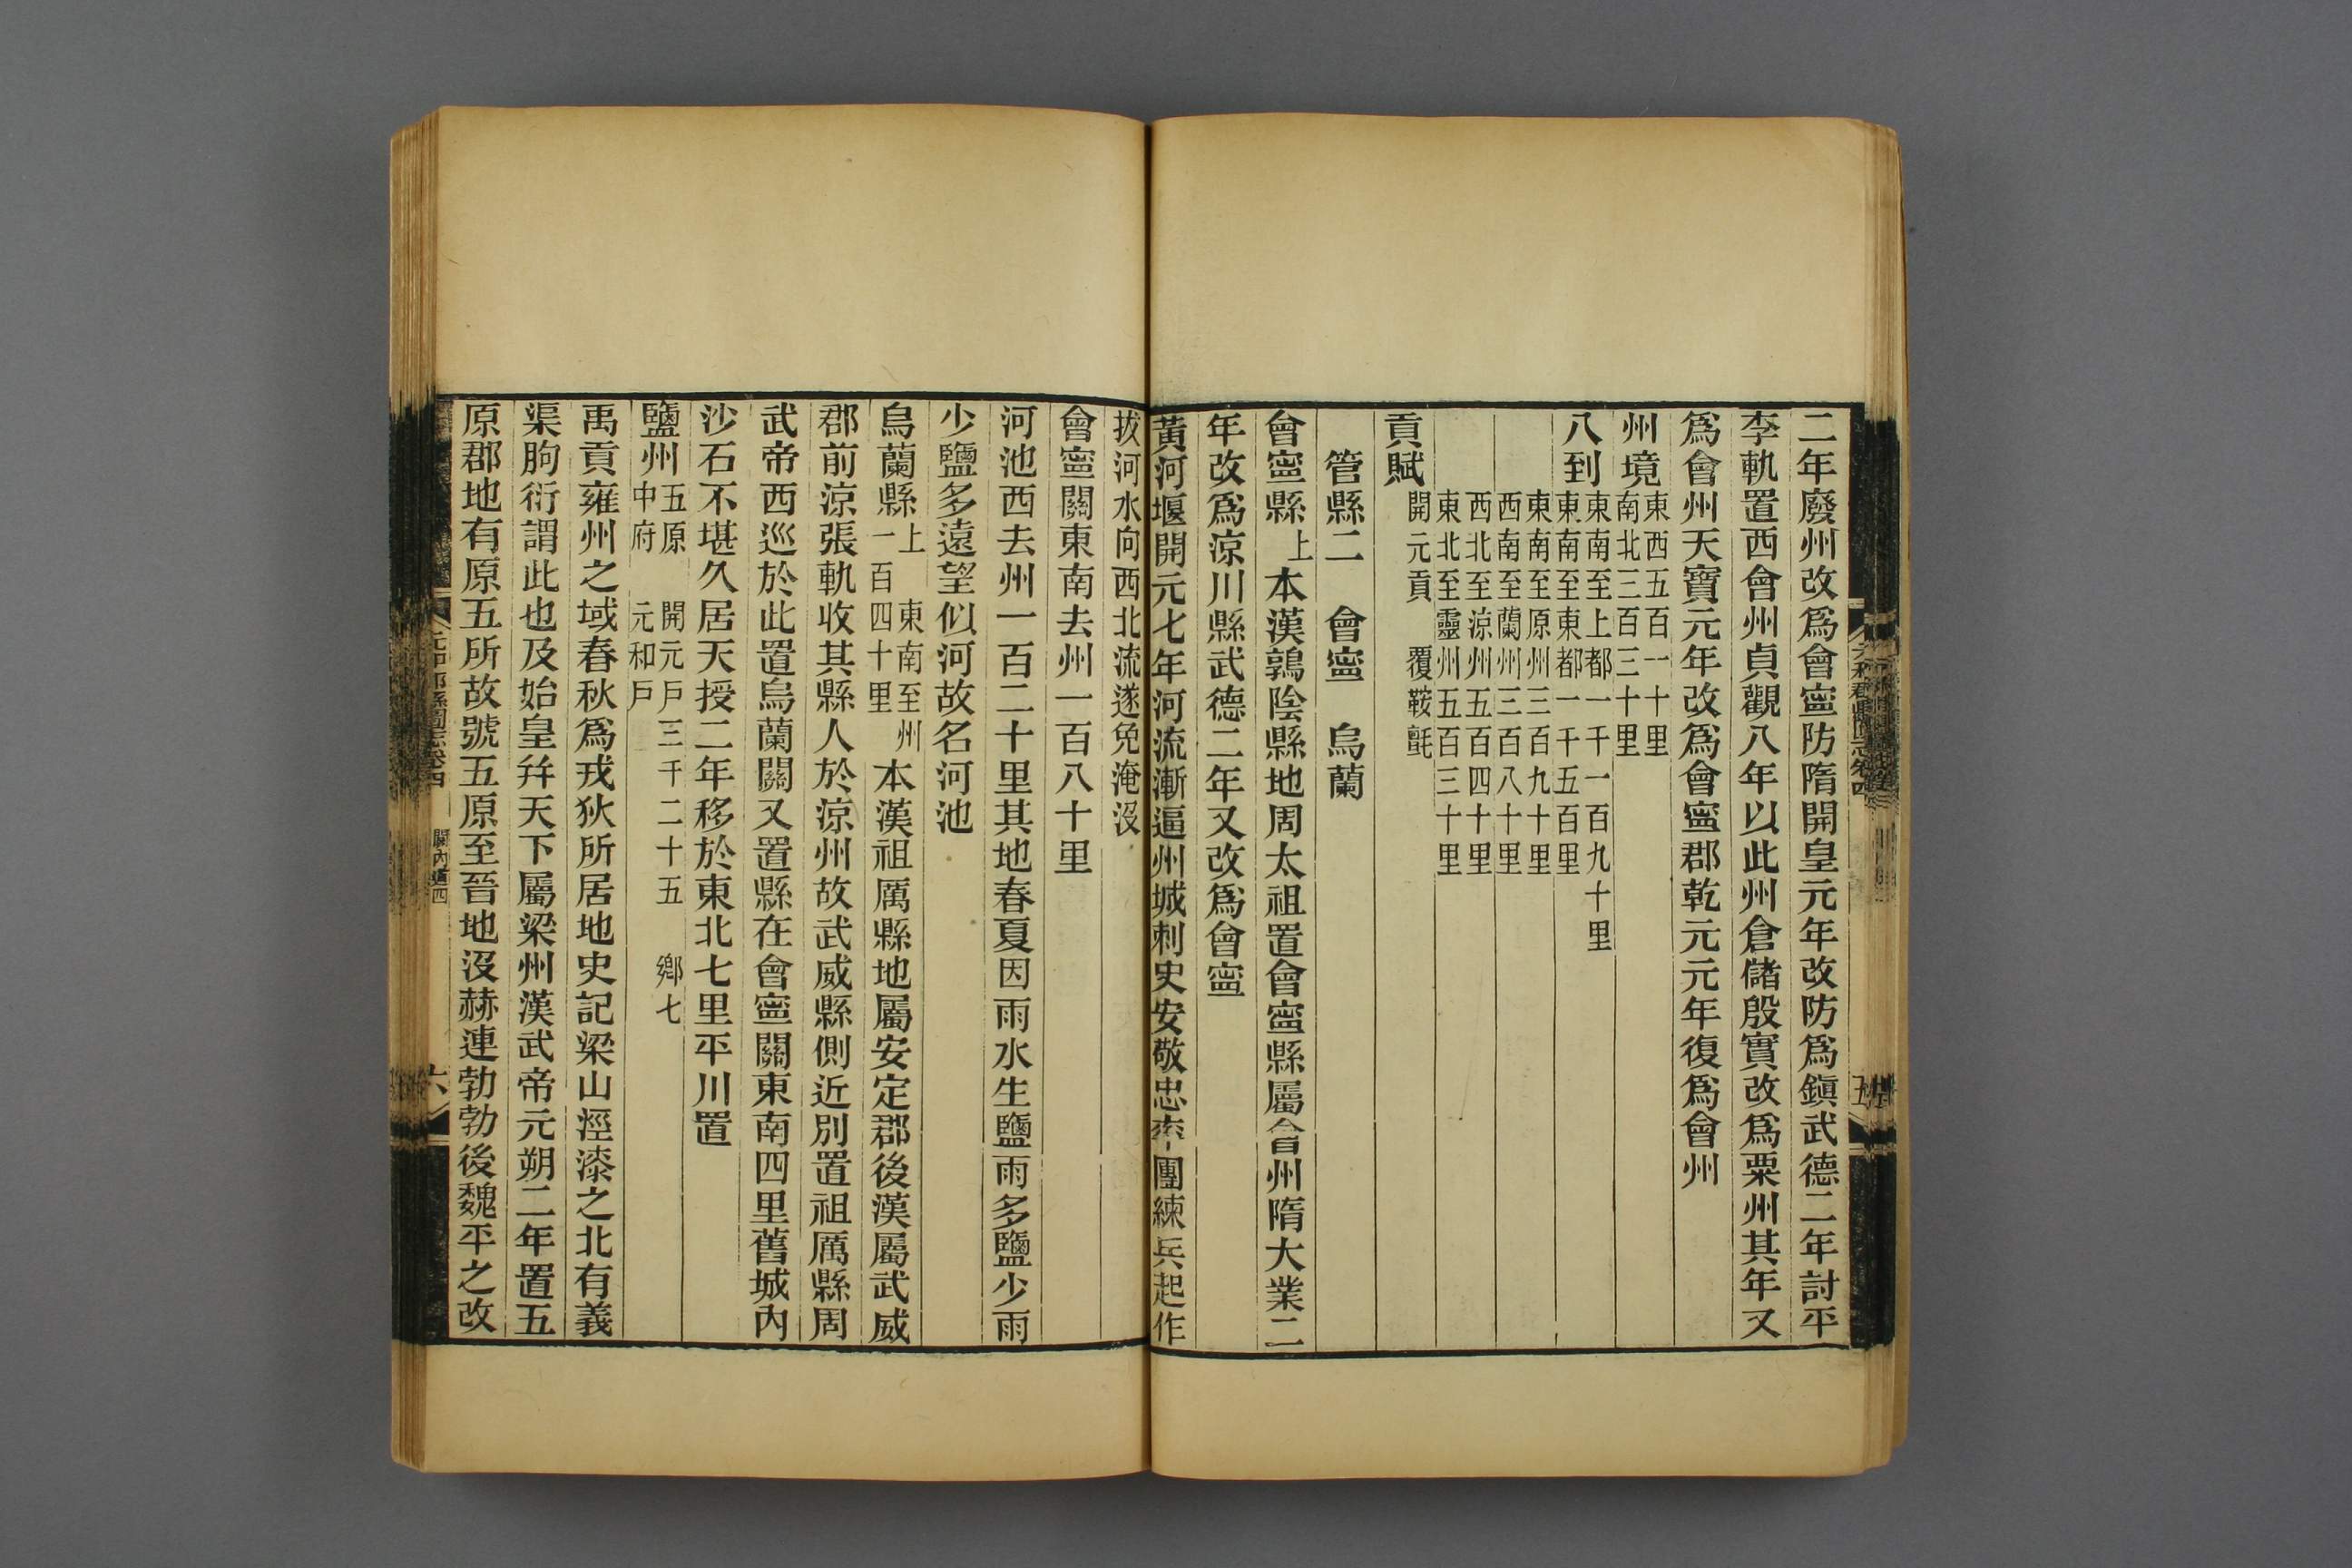 二年廢州改爲會寧防隋開皇元年改防爲鎭武德二年討平
李軌置西會州貞觀八年以此州倉儲殷實改爲粟州其年又
爲會州天寶元年改爲會寧郡乾元元年復爲會州
州境東西五百一十里
南北三百三十里
八到東南至上都一千一百九十里
東南至東都一千五百里
東南至原州三百九十里
西南至蘭州三百八十里
西北至涼州五百四十里
東北至靈州五百三十里
貢賦開元貢 覆鞍氈
管縣二 會寧 烏蘭
會寧縣上 本漢鶉陰縣地周太祖置會寧縣屬會州隋大業二
年改爲涼川縣武德二年又改爲會寧
黃河堰開元七年河流漸逼州城刺史安敬忠率團練兵起作
拔河水向西北流遂免淹沒
會寧關東南去州一百八十里
河池西去州一百二十里其地春夏因雨水生鹽雨多鹽少雨
少鹽多遠望似河故名河池
烏蘭縣上 東南至州
一百四十里
本漢祖厲縣地屬安定郡後漢屬武威
郡前涼張軌收其縣人於涼州故武威縣側近別置祖厲縣周
武帝西巡於此置烏蘭關又置縣在會寧關東南四里舊城內
沙石不堪久居天授二年移於東北七里平川置
鹽州五原 開元戶三千二十五 鄉七
中府 元和戶
禹貢雍州之域春秋爲戎狄所居地史記梁山涇漆之北有義
渠朐衍謂此也及始皇幷天下屬梁州漢武帝元朔二年置五
原郡地有原五所故號五原至晉地沒赫連勃勃後魏平之改
元和郡縣圖志卷四 關內道四
六